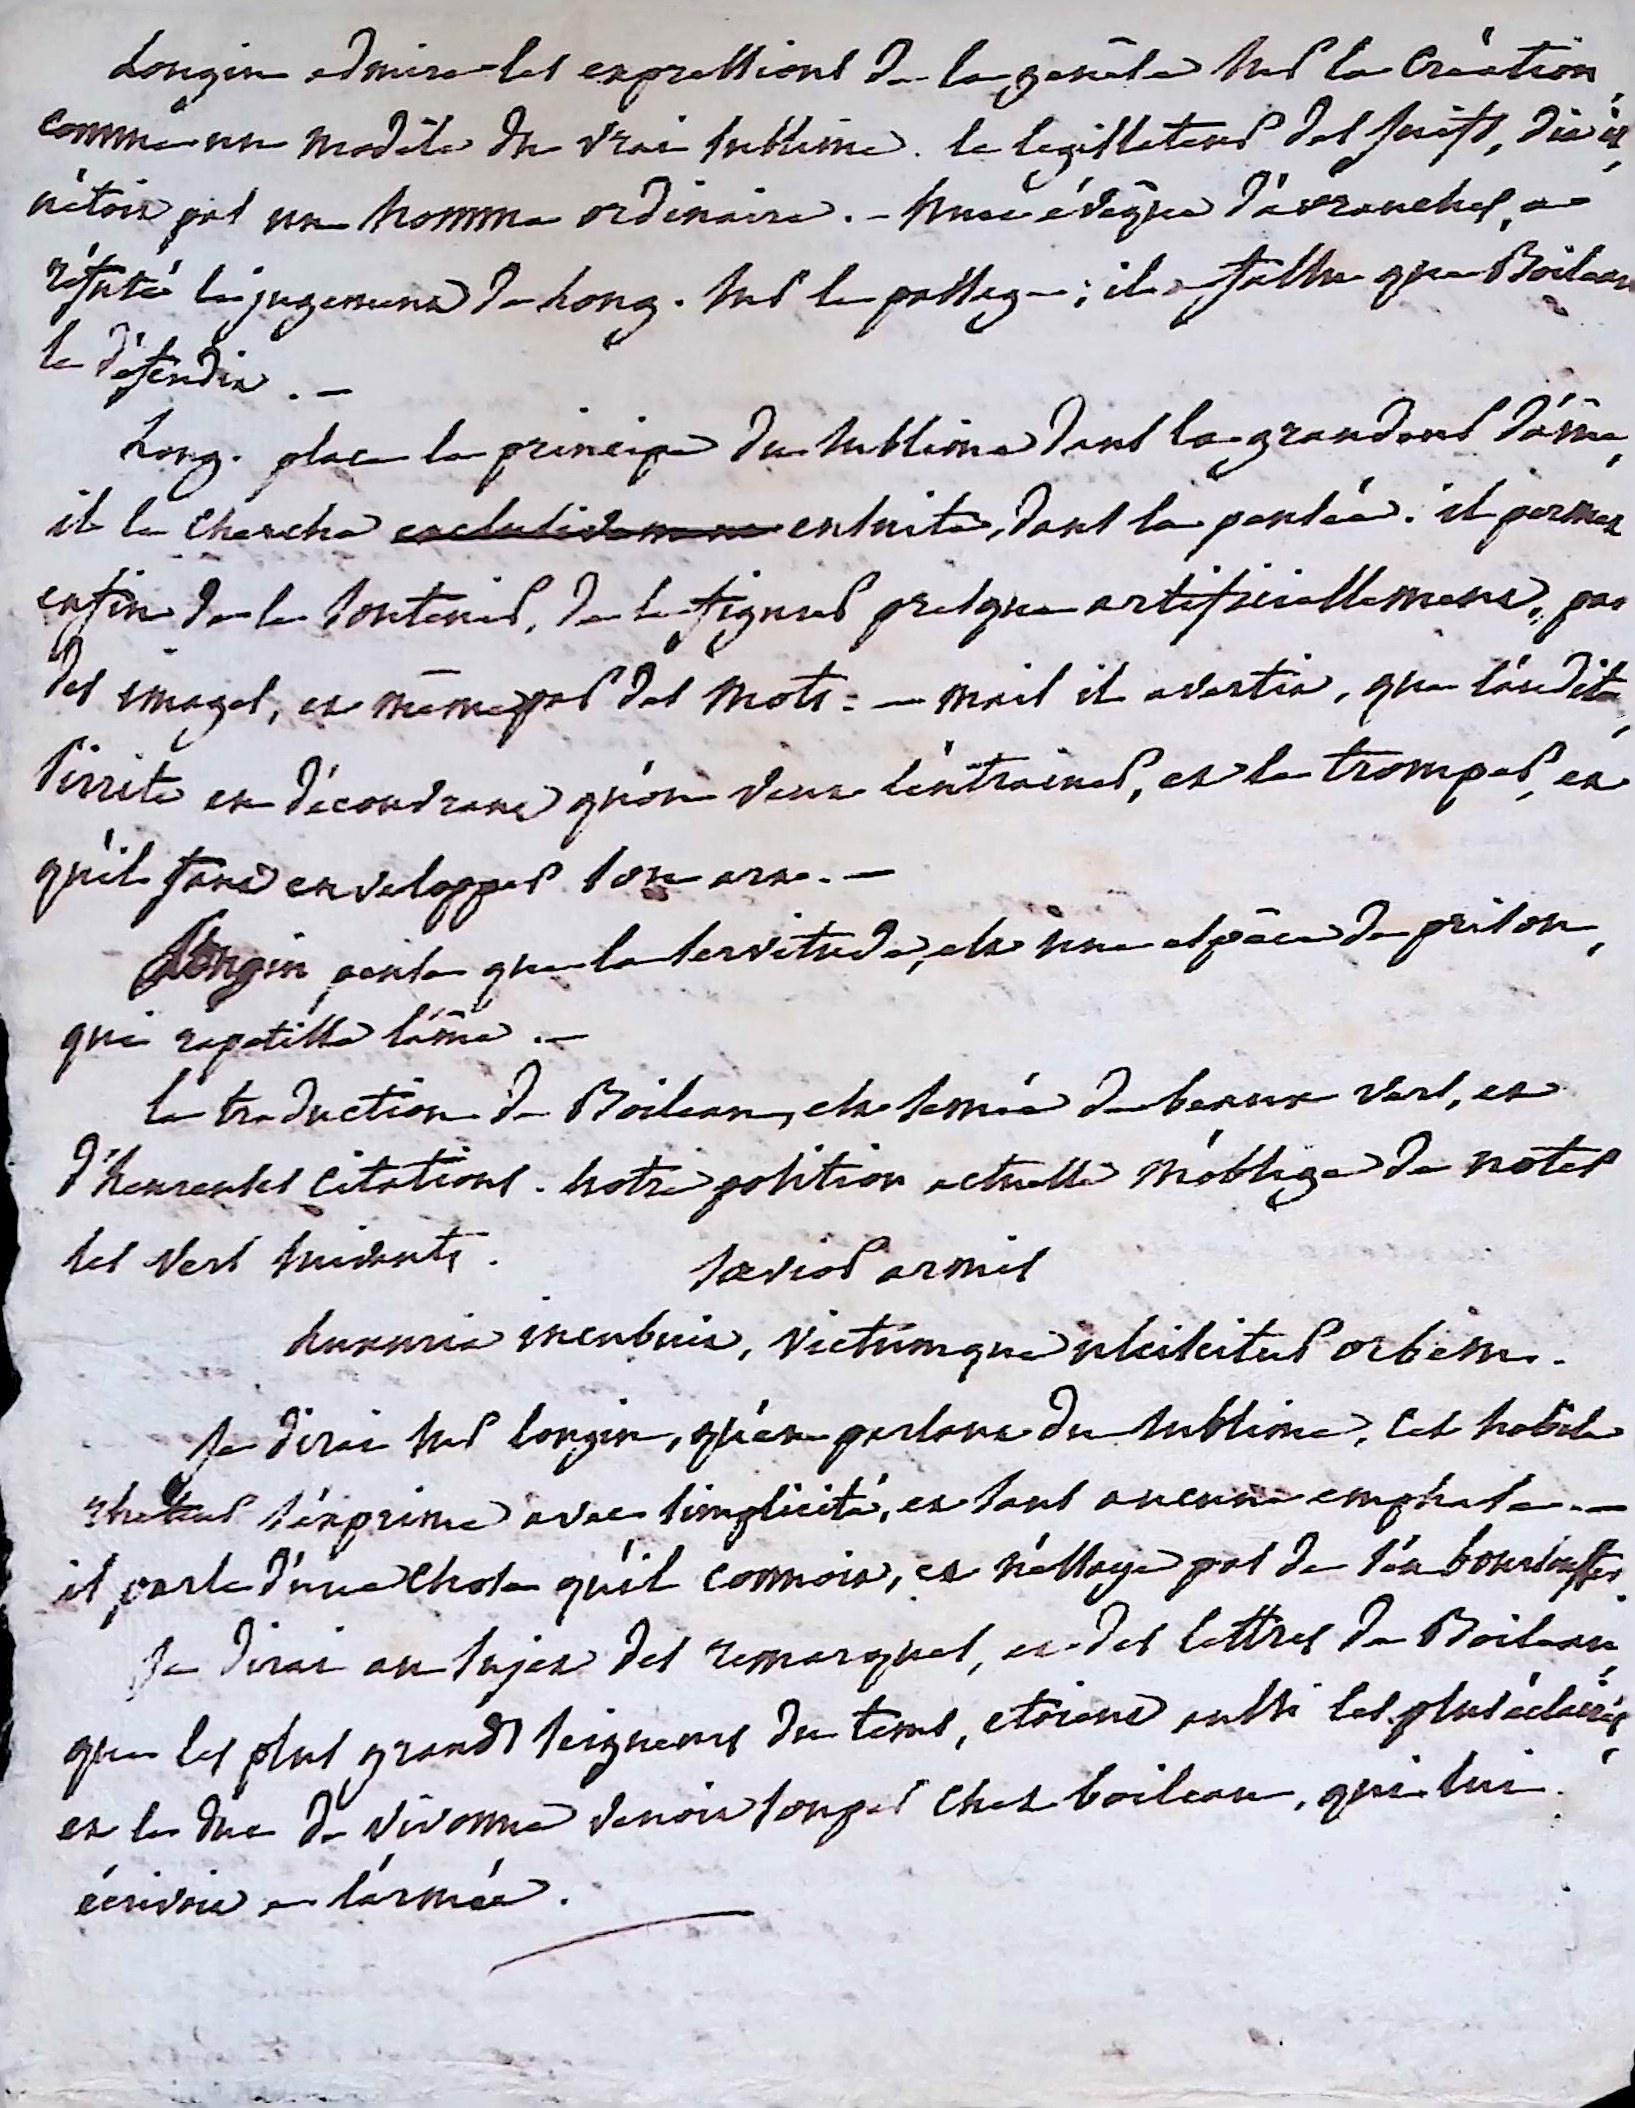 Longin admire les expressions de la genèse sur la Création,
comme un modèle du vrai sublime. le legislateur des juifs, dit il,
n'étoit pas un homme ordinaire. - huet évêque d'avranches, a
réfuté le jugement de Long. sur le passage; il a fallu que Boileau
le défendit. -
Long. place le principe du sublime dans la grandeur d'âme,
il le cherche exclusivement ensuite, dans la pensée. il permet
enfin de le soutenir, de le figurer presque artificiellement, par
des images, et même par des mots: - mais il avertit, que l'audite,
s'irrite en découvrant qu'on veut l'entrainer, et le tromper, et
qu'il faut envelopper son art. -
Longin pense que la servitude, est une espèce de prison,
qui rapetisse l'âme. -
la traduction de Boileau, est semée de beaux vers, et
d'heureuses citations. notre position actuelle m'oblige de noter
les vers suivants. sævior armis
luxuria incubuit, victumque ulciscitur orbem.
Je dirai sur longin, qu'en parlant du sublime, cet habile
rheteur s'exprime avec simplicité, et sans aucune emphase. -
il parle d'une chose qu'il connoit, et n'essaye pas de s'en boursouffler.
Je dirai au sujet des remarques, et des lettres de Boileau,
que les plus grands seigneurs du tems, etoient aussi les plus éclairés,
et le duc de vivonne venoit souper chez boileau, qui lui
écrivoit a l'armée.